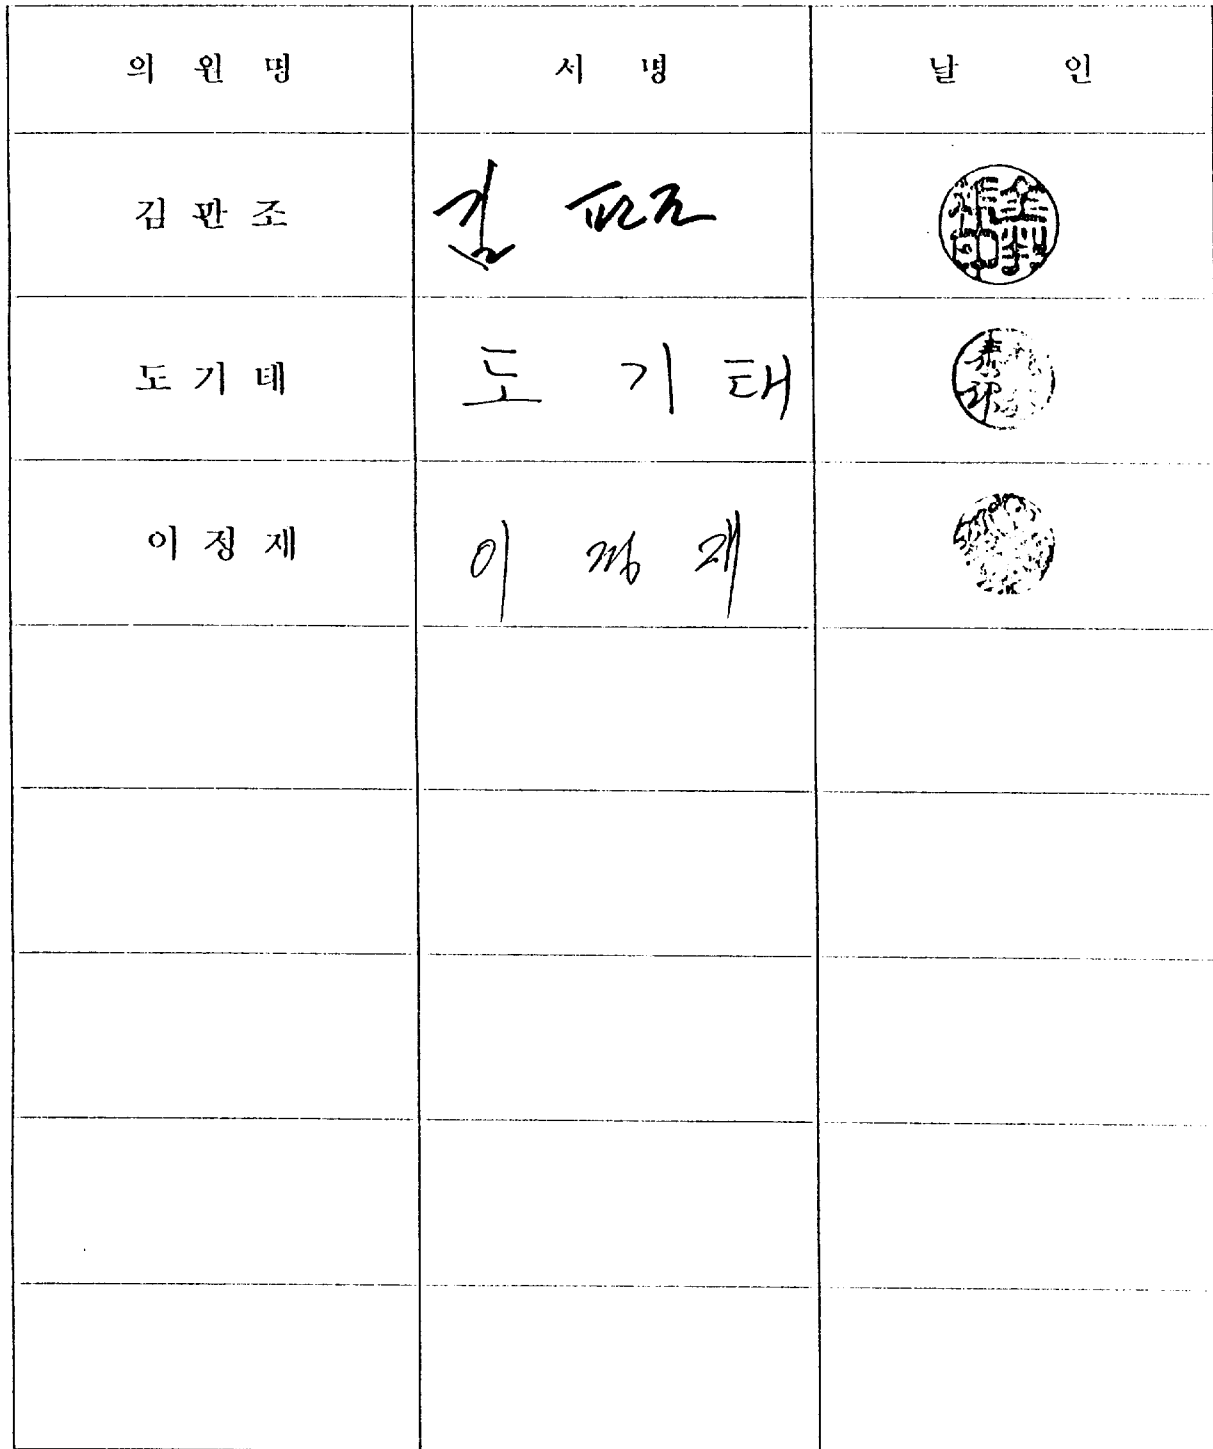 의 원 명 서 명 날 인
김 판 조 김 판조
도 기 태 도 기 태
이 정 재 이 정 재